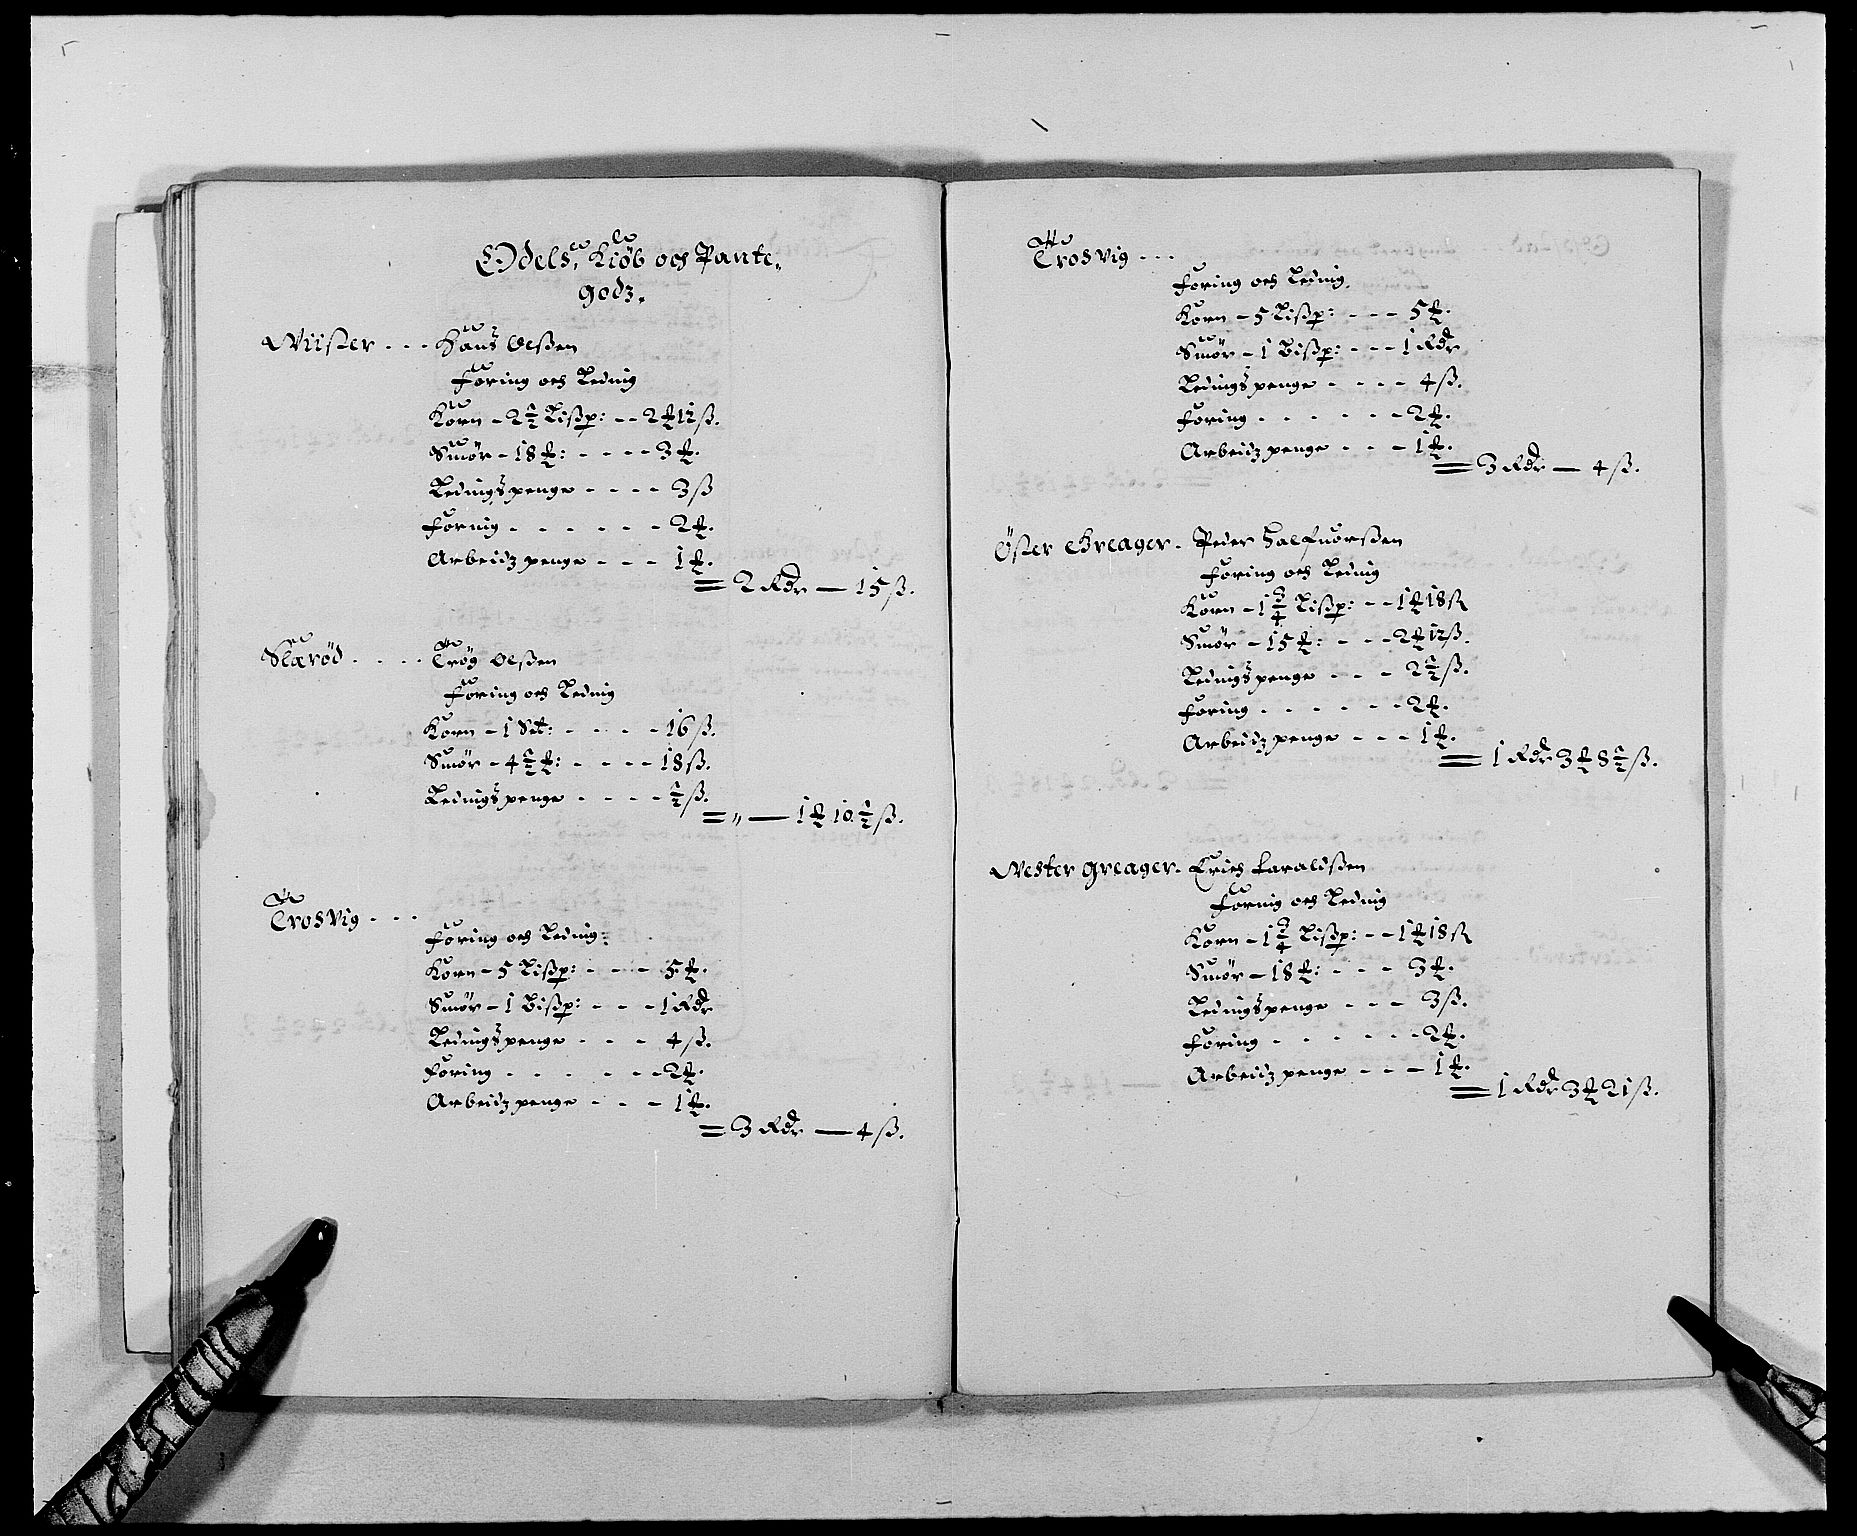 Odels, Kiøb och Pante,,
godz.
Wiister - - - Hans Olßen
Foring och Leding
Korn - 2½ Lißp: - - 2 ₰ 12 ß.
Smør - 18 ₰: - - - - 3 ₰.
Ledingspenge - - - - 3 ß
Foring - - - - - - 2 ₰.
Arbeidzpenge - - - 1 ₰.
= 2 Rdr — 15 ß.
Slærød - - - - Trøg Olßen
Foring och Leding
Korn - 1 Set: - - - - 16 ß.
Smør - 4½ ₰: - - - - 18 ß.
Ledingspenge - - - - ½ ß.
= „ — 1 ₰ 10½ ß.
Trosvig - - -
Foring och Leding:
Korn - 5 Lißp: - - - 5 ₰.
Smør - 1 Bißp: - - - 1 Rdr
Ledingspenge - - - 4 ß.
Foring - - - - - - 2 ₰.
Arbeidzpenge - - - 1 ₰.
= 3 Rdr — 4 ß.
Trosvig - - -
Foring och Leding.
Korn - 5 Lißp: - - - 5 ₰.
Smør - 1 Bißp: - - - 1 Rdr
Ledingspenge - - - - 4 ß.
Foring - - - - - - 2 ₰.
Arbeidzpenge - - - 1 ₰.
= 3 Rdr — 4 ß.
Øster Greager. Peder Halfuorßen
Foring och Leding
Korn - 1¾ Lißp: - - 1 ₰ 18 ß
Smør - 15 ₰: - - - 2 ₰ 12 ß.
Ledingspenge - - - 2½ ß.
Foring - - - - - - 2 ₰.
Arbeidzpenge - - - 1 ₰.
= 1 Rdr 3 ₰ 8½ ß.
Wester Greager. Erich Taraldßen
Foring och Leding
Korn - 1¾ Lißp: - - 1 ₰ 18 ß
Smør - 18 ₰: - - - 3 ₰.
Ledingspenge - - - 3 ß.
Foring - - - - - - 2 ₰.
Arbeidzpenge - - - 1 ₰.
= 1 Rdr 3 ₰ 21 ß.